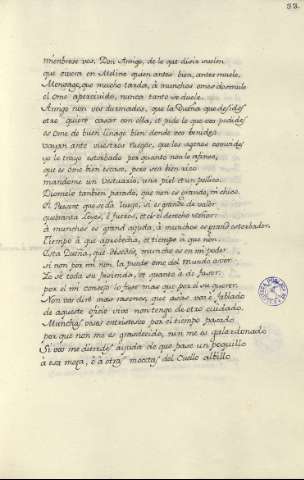 88.
miembrese vos, Don Amigo, de lo que disir suelen
que civera en Molino quien antes bien, antes muele.
Mensage, que mucho tarda, à muchos omes desmuele
el ome apercibido, nunca tanto se duele.
Amigo non vos durmades, que la Dueña que desides
otro quiere casar con ella, et pide lo que vos pedides
es ome de buen linage bien donde vos venides
vayan ante vuestros ruegos, que los agenos convides
yo lo trayo estorbado por quanto non lo afinco,
que es ome bien escaso, pero sea bien rico
mandome un vestuario, una piel et un pellico
Diomelo tambien parado, que non es grande, ni chico.
El Present que se dà luego, si es grande de valor
quebranta Leyes, è fueros, et es el derecho señor:
à muchos es grand ayuda, à muchos es grand estorbador.
Tiempo à que aprovecha, et tiempo à que non.
Esta Dueña, que disedes, mucho es en mi poder
si non por mi non la puede ome del mundo aver
Yo se toda su fasienda, et quanto à de faser
por el mi consejo lo fase mas que por el su querer.
Non vos dirè mas rasones, que asàs vos è fablado
de aqueste ofisio vivo non tengo de otro cuidado.
Munchas veses entristesco por el tiempo pasado
por que non me es gradescido, nin me es galardonado
Si vos me dieredes ayuda de que pase un poquillo
à esa moza, è à otras mocetas del cuello albillo